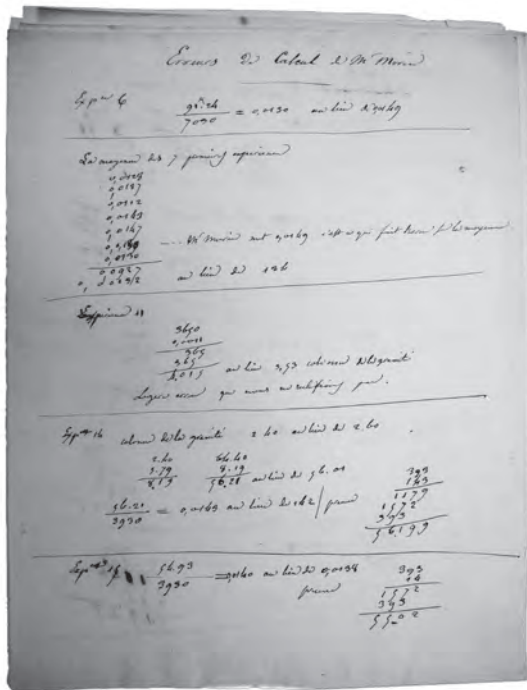 Erreurs de Calcul de Mr Morin
Expce 6 91.24 / 7030 = 0,0130 au lieu de 0,0149
La moyenne des 7 premières expériences
0,0128
0,0137
0,0112
0,0143
0,0147
0,0130
0,0130
Mr Morin met 0,0149 c'est ce qui fait
0.0927
au lieu de 136
Expérience 11
3650
0,0011
365
365
4,015 au lieu 3,93 colonne de la gravité
Légère erreur que nous ne rectifions pas.
Expce 14 colonne de la gravité 2.40 au lieu de 2.60
2.40
5.79
8.19
48.19
56.21 au lieu de
56.21 / 3930 = 0,0143 au lieu de 142 preuve
393
143
1179
1572
393
56.199
Expce 15 54.93 / 3930 = 0,0140 au lieu de 0,0138
preuve
393
14
1572
393
5502